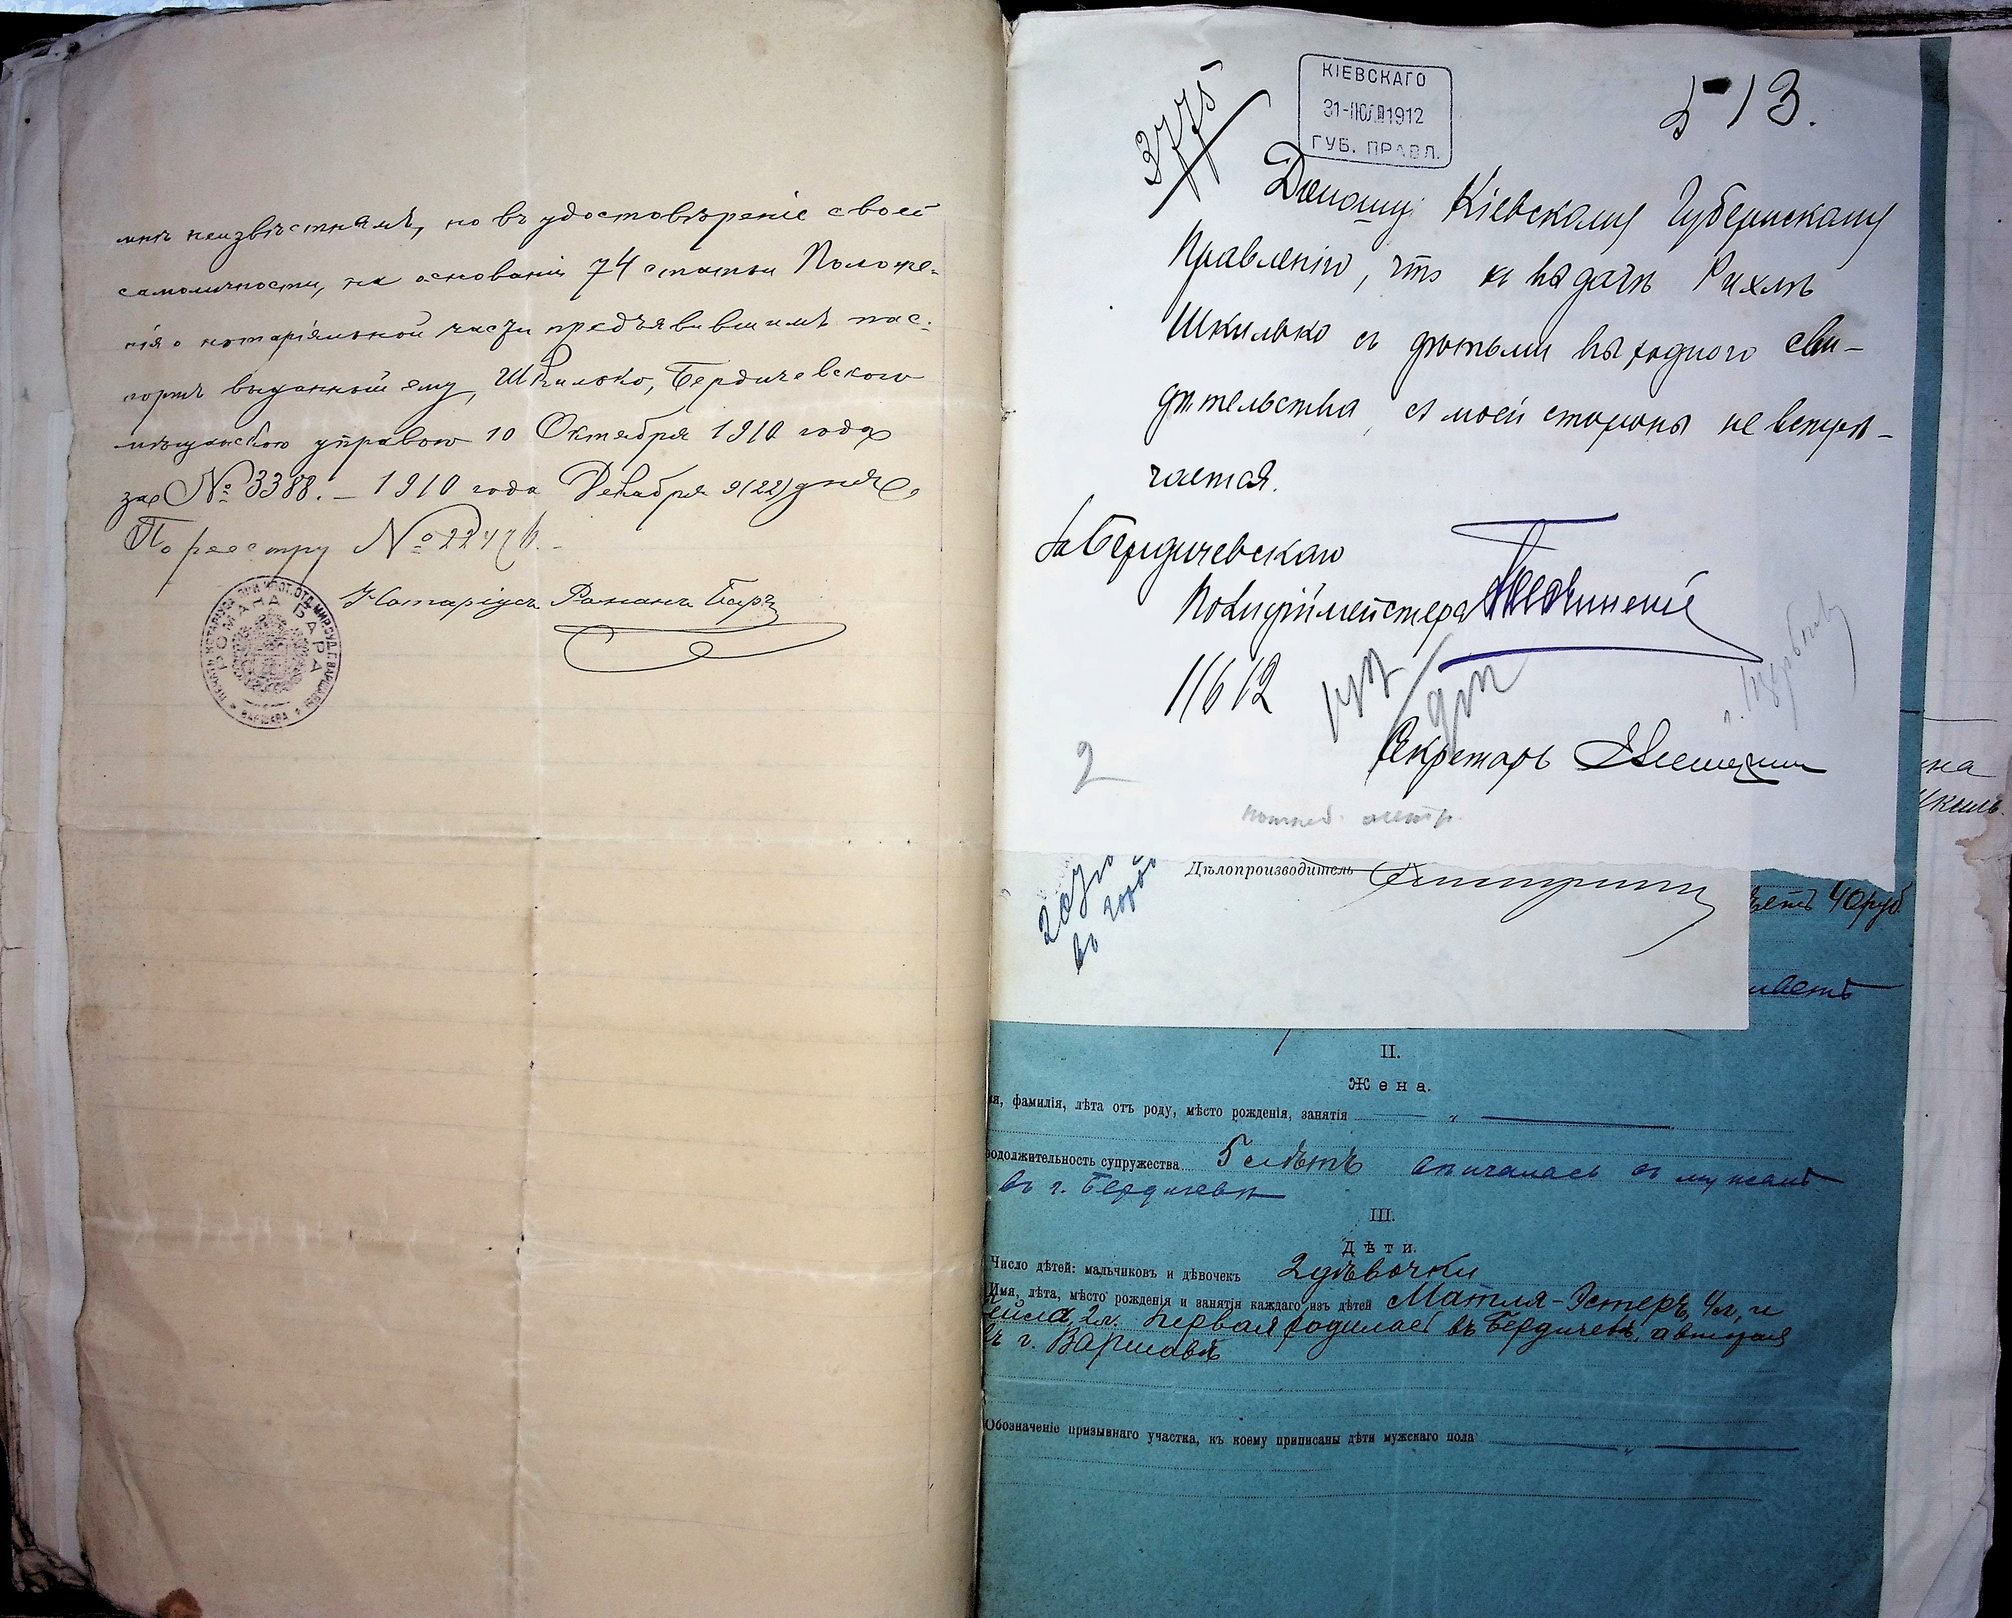 мнѣ неизвѣстнымъ, но въ удостовѣреніе своей
самоличности, на основаніи 74 статьи Положе-
нія о нотаріальной части предъявившимъ пас-
портъ выданный ему, Шкилько, Бердичевскою
мѣщанскою управою 10 Октября 1910 года
за № 3388. – 1910 года Декабря 9(22) дня
По реестру №
Нотаріусъ Романъ Баръ
РОМАНА БАРА
ВАРШАВА
3775
КІЕВСКАГО
31-ІЮЛ 1912
ГУБ. ПРАВЛ.
13.
Доношу Кіевскому Губернскому
Правленію, что къ выдачѣ Рихлѣ
Шкилько съ дѣтьми выходного сви-
дѣтельства, съ моей стороны не встрѣ-
чается.
За Бердичевскаго
Полиціймейстера
11/6 12
Секретарь
2
въ
Дѣлопроизводитель
на
Шкиль
40 руб.
II.
Жена.
фамилія, лѣта отъ роду, мѣсто рожденія, занятія
продолжительность супружества 5 лѣтъ вѣнчалась съ мужемъ
въ г. Бердичевѣ
III.
Дѣти.
Число дѣтей: мальчиковъ и дѣвочекъ 2 дѣвочки
Имя, лѣта, мѣсто рожденія и занятія каждаго изъ дѣтей Матля-Эстеръ, 4 л., и
Бейла, 2 л. первая родилась въ Бердичевѣ, а вторая
въ г. Варшавѣ
Обозначеніе призывнаго участка, къ коему приписаны дѣти мужскаго пола